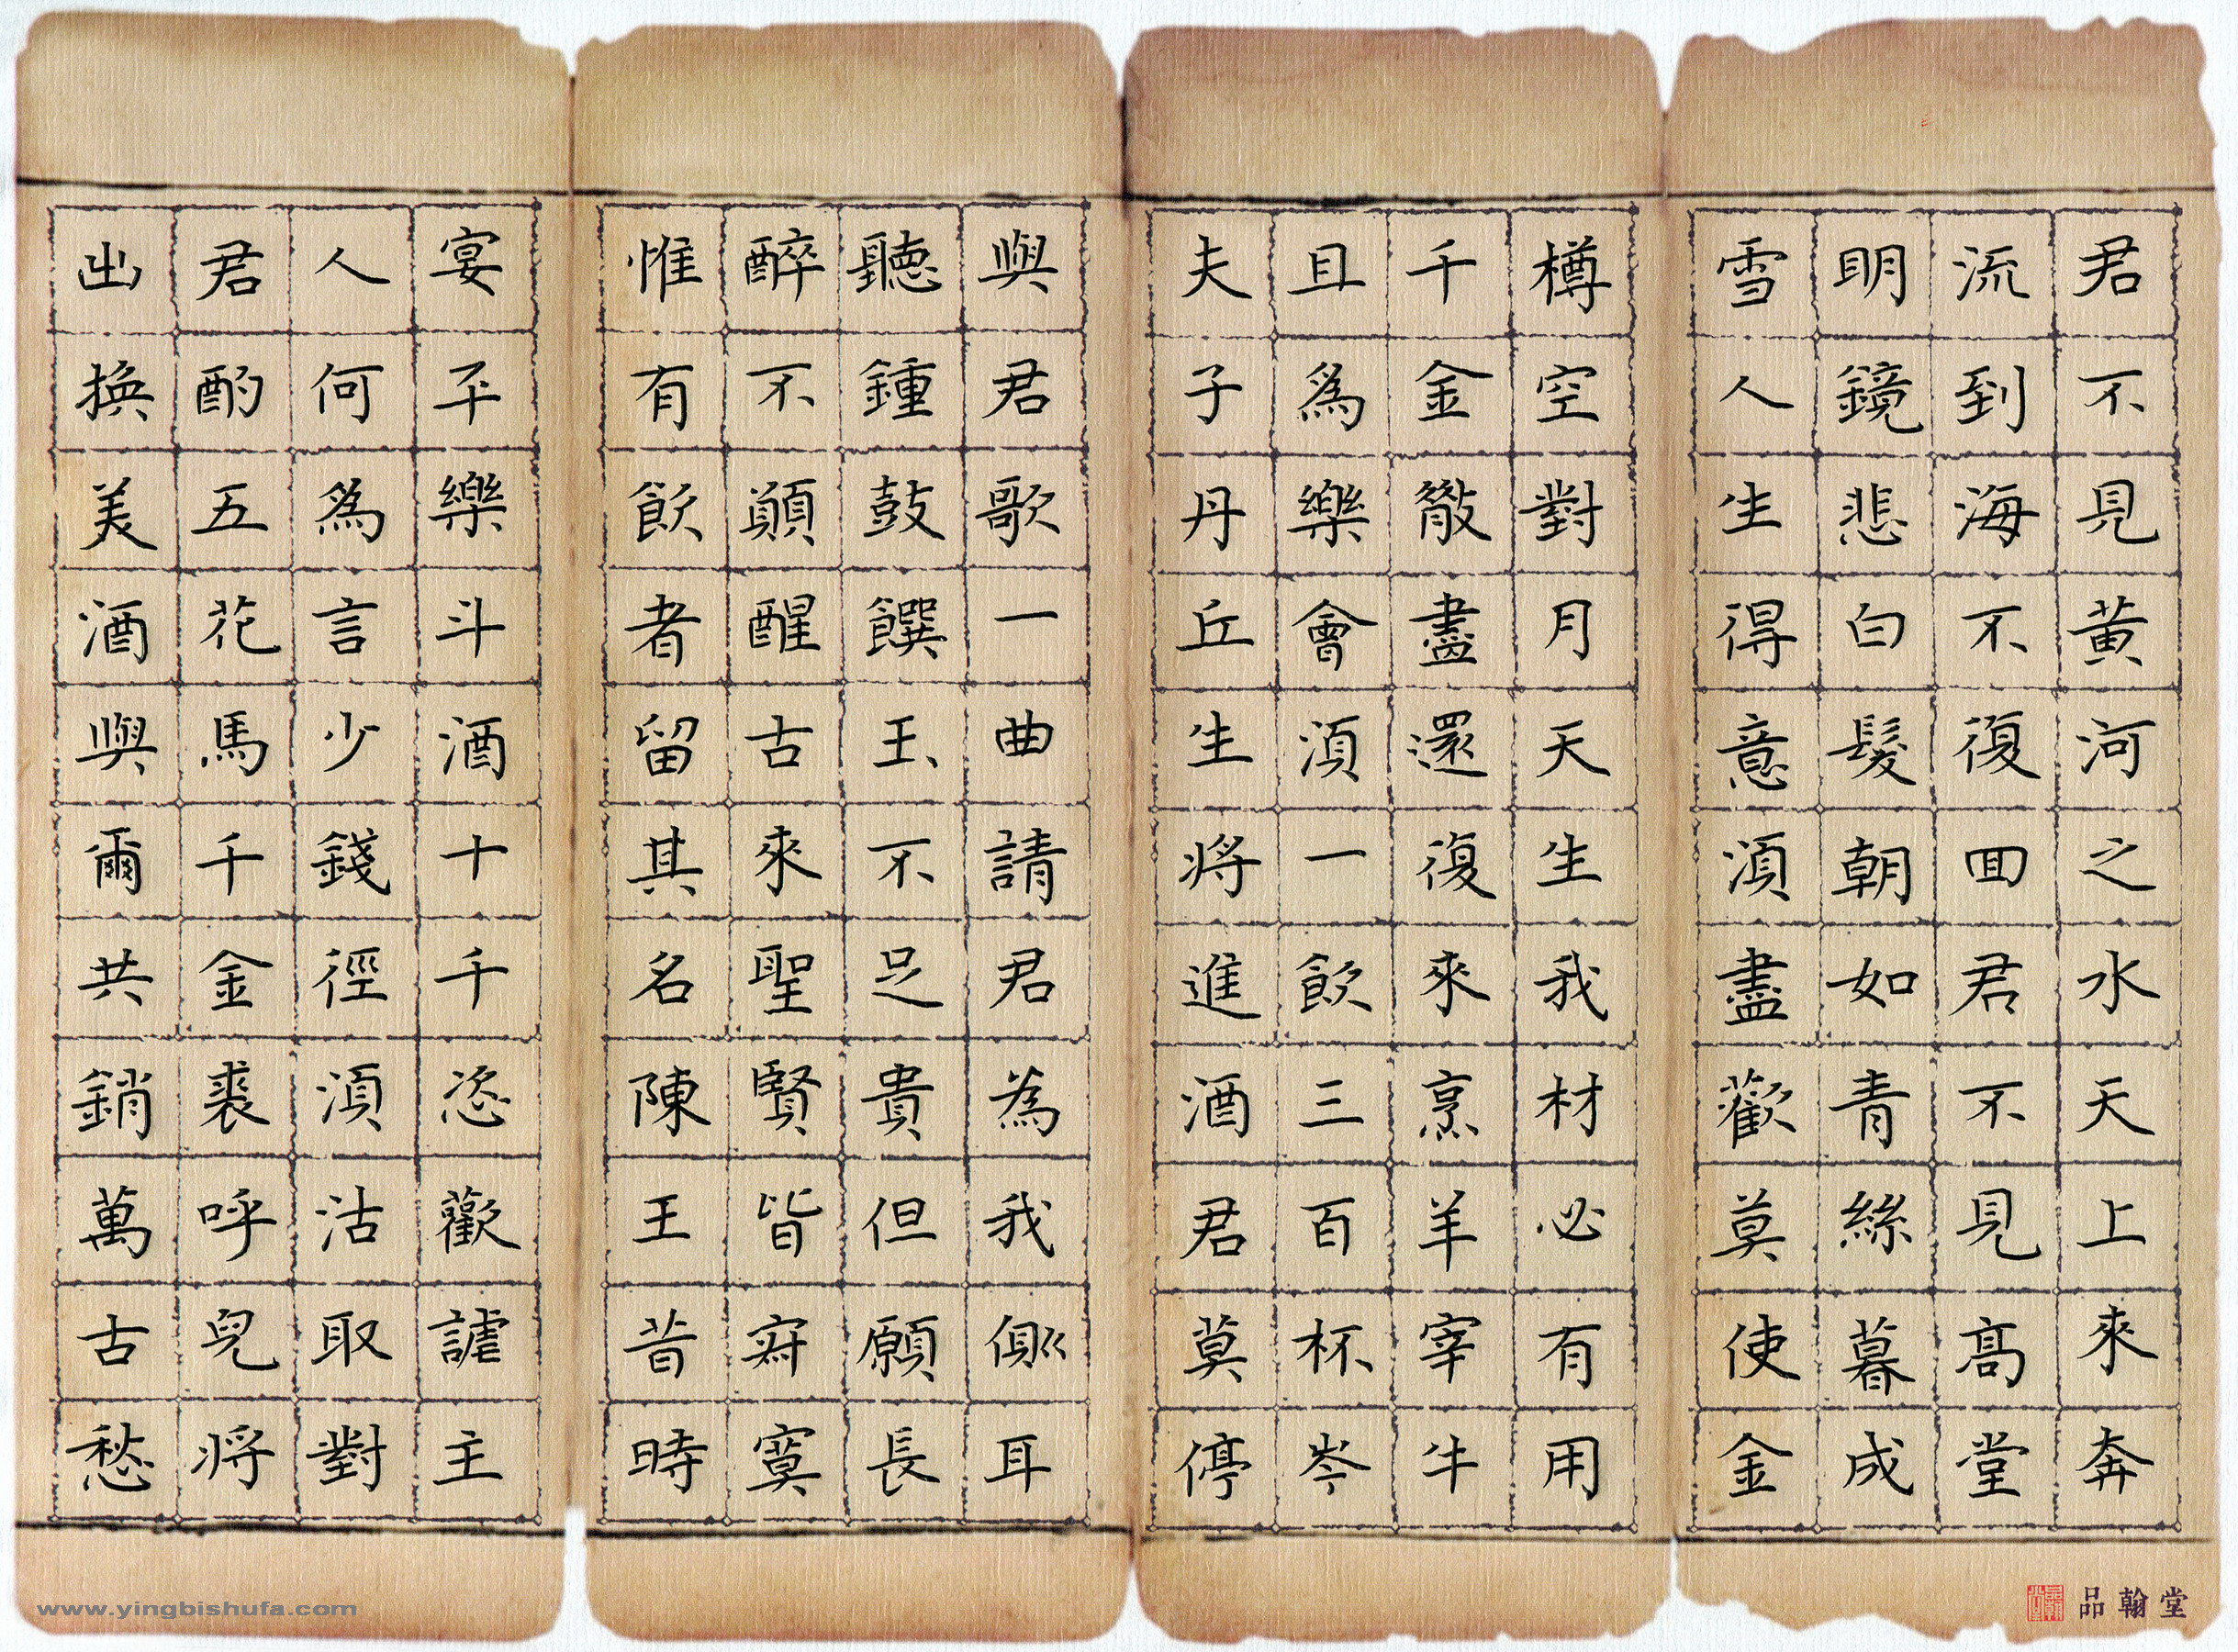 君不見黃河之水天上來奔
流到海不復回君不見髙堂
明鏡悲白髮朝如青絲暮成
雪人生得意湏盡歡莫使金
樽空對月天生我材必有用
千金散盡還復來烹羊宰牛
且爲樂會湏一飲三百杯岑
夫子丹丘生將進酒君莫停
與君歌一曲請君為我側耳
聽鍾鼓饌玉不足貴但願長
醉不願醒古來聖賢皆寂寞
惟有飲者留其名陳王昔時
宴平樂斗酒十千恣歡謔主
人何爲言少錢徑湏沽取對
君酌五花馬千金裘呼兒將
出換美酒與爾共銷萬古愁
www.yingbishufa.com
品翰堂